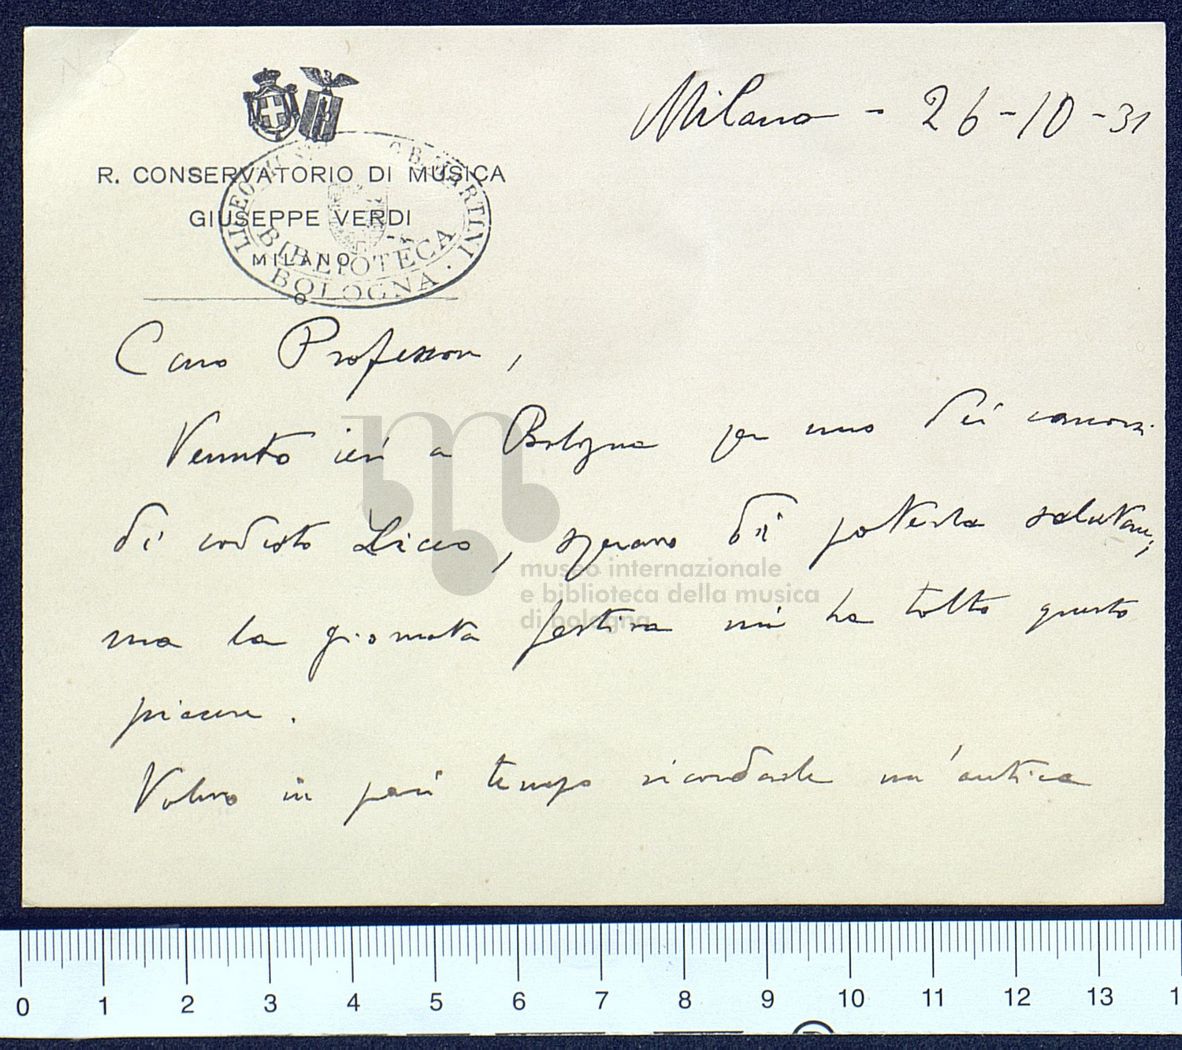 Milano - 26-10-31
R. CONSERVATORIO DI MUSICA
GIUSEPPE VERDI
MILANO
LICEO MUSICALE G.B. MARTINI
BIBLIOTECA
BOLOGNA
Caro Professore,
Venuto ieri a Bologna per uno dei concorsi
di codesto Liceo, speravo di poterla salutare;
ma la giornata festiva mi ha tolto questo
piacere.
Volevo in pari tempo ricordarle un'antica
museo internazionale
e biblioteca della musica
di bologna
0 1 2 3 4 5 6 7 8 9 10 11 12 13